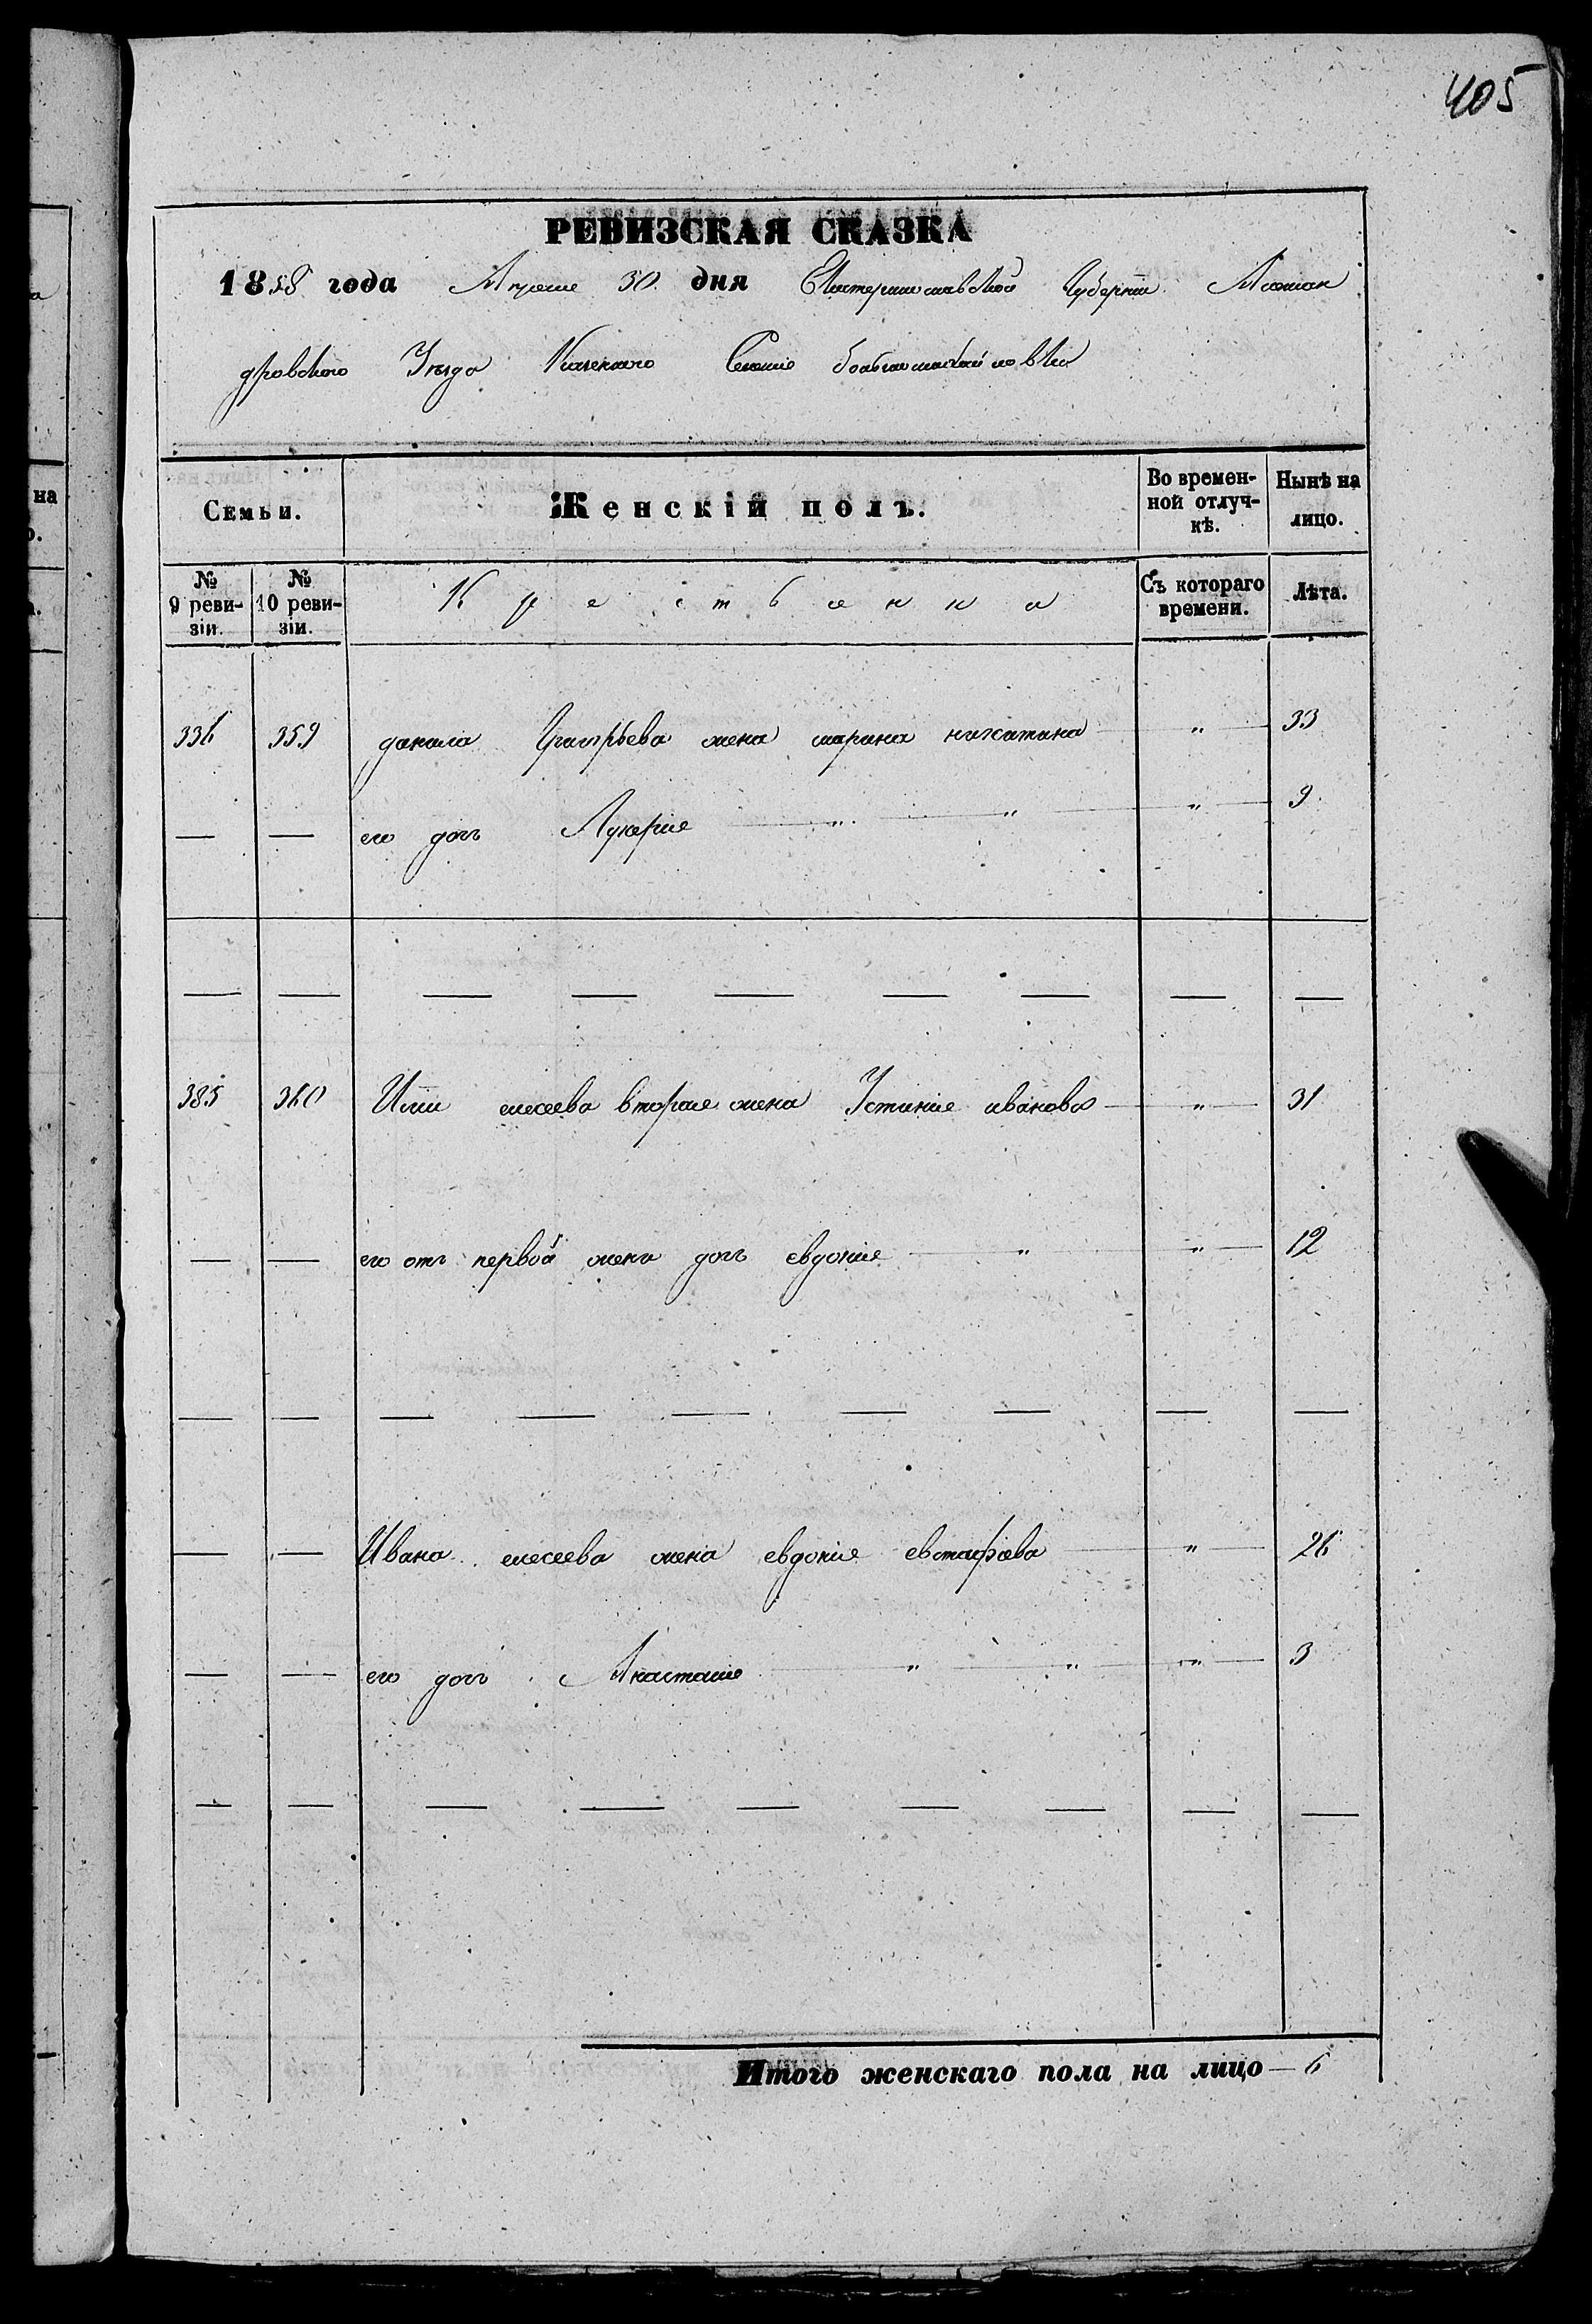 405
РЕВИЗСКАЯ СКАЗКА
1858 года Апреля 30 дня Екатеринославской Губернии Алексан
дровского Уезда Казенного Селения
Семьи. Женскій полъ. Во времен-ной отлуч-кѣ. Нынѣ на лицо.
№ 9 реви-зіи. № 10 реви-зіи. Крестьянки Съ котораго времени. Лѣта.
336 359 данила Григорьева жена марина никитина " 33
— — его дочь Лукерия " " " 9
— — — — — — — — —
385 360 Илии елисеева вторая жена Устиния иванова " 31
— — его отъ первой жены дочь евдокия " " 12
— — — — — — — — —
— — Ивана елисеева жена евдокия евстафиева " 26
— — его дочь Анастасия " " " 3
— — — — — — — — —
Итого женскаго пола на лицо — 6
на